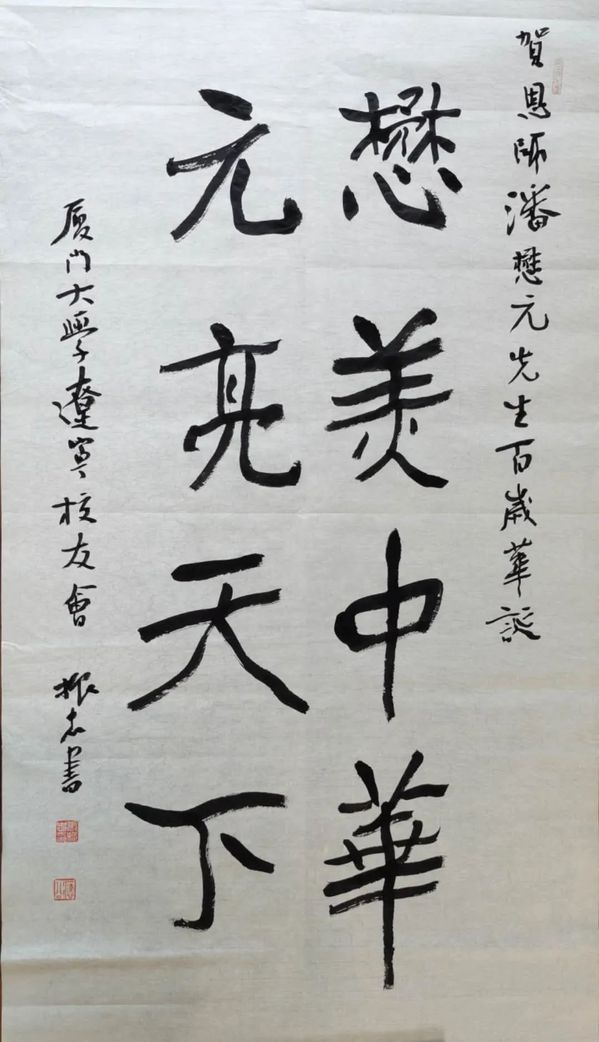 賀恩師潘懋元先生百歲華誕
懋美中華
元亮天下
厦门大學遼寧校友會 振志書